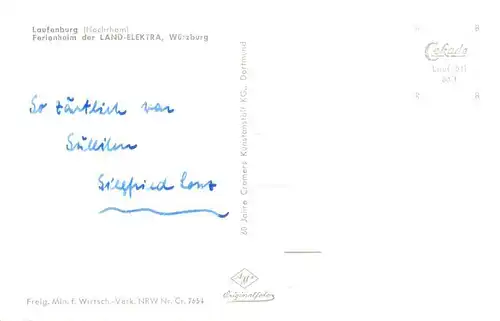 Laufenburg (Hochrhein)
Ferienheim der LAND-ELEKTRA, Würzburg
Cekade
Lauf 511
So zärtlich war
Suleiken
Siegfried Lenz
60 Jahre Cramers Kunstanstalt KG., Dortmund
Agfa
Originalfoto
Freig. Min. f. Wirtsch.-Verk. NRW Nr. Cr. 7654